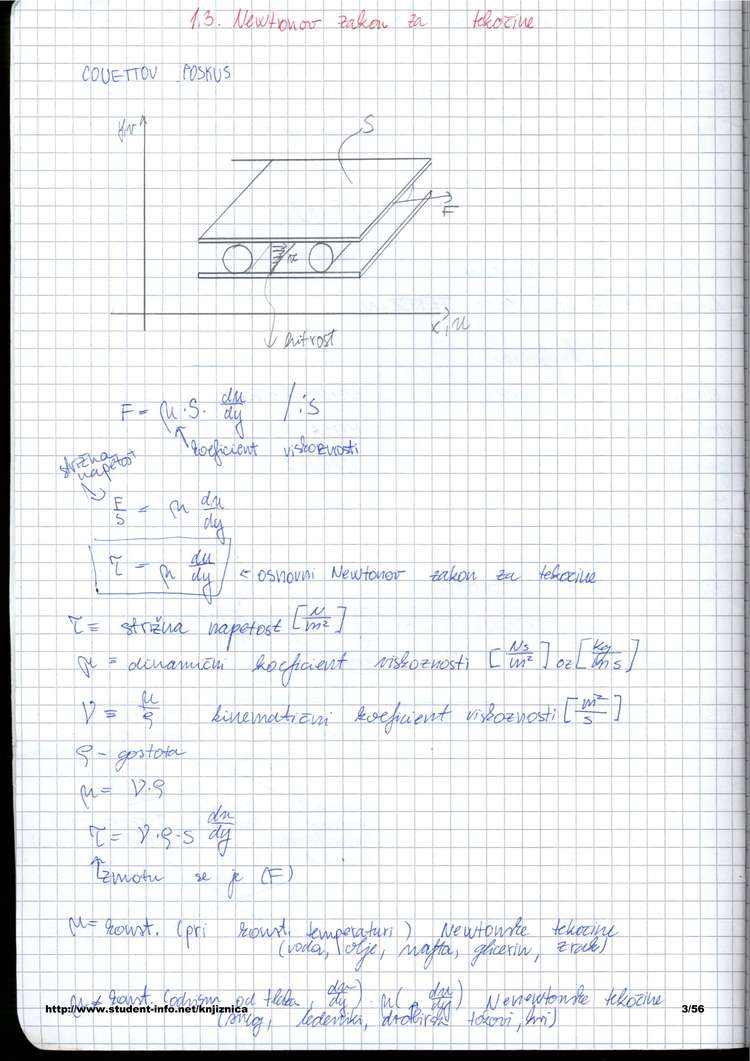 1.3. Newtonov zakon za tekočine
COUETTOV POSKUS
y,v
S
F
x,u
hitrost
F = μ·S· du/dy /:S
koeficient viskoznosti
strižna napetost
F/S = μ du/dy
τ = μ du/dy ← osnovni Newtonov zakon za tekočine
τ = strižna napetost [N/m²]
μ = dinamični koeficient viskoznosti [Ns/m²] oz [kg/ms]
ν = μ/ρ kinematični koeficient viskoznosti [m²/s]
ρ - gostota
μ = ν·ρ
τ = ν·ρ·S du/dy
zmotu se je (F)
μ = konst. (pri konst. temperaturi) Newtonske tekočine
(voda, olje, nafta, glicerin, zrak)
μ ≠ konst. (odvisna od tlaka, du/dy) μ( , du/dy) Nenewtonske tekočine
(sneg, ledeniki, drobirski tokovi, kri)
http://www.student-info.net/knjiznica
3/56